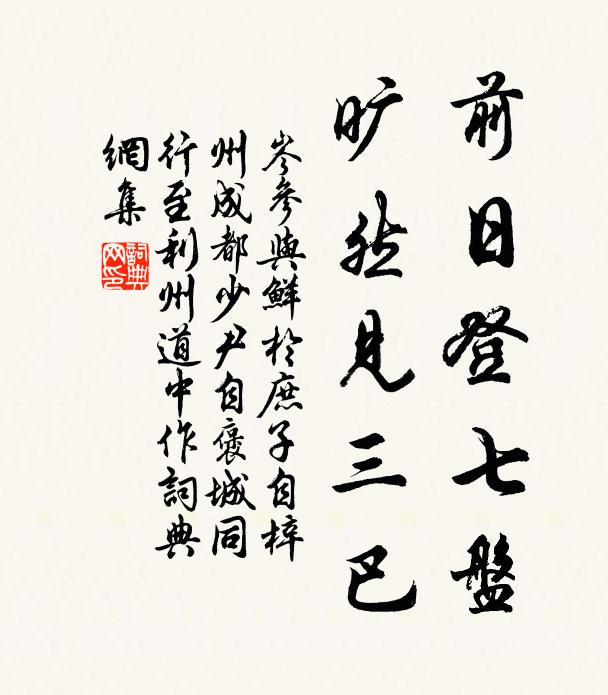 前日登七盤
旷然見三巴
岑參與鮮於庶子自梓
州成都少尹自褒城同
行至利州道中作詞典
網集
詞典
网印